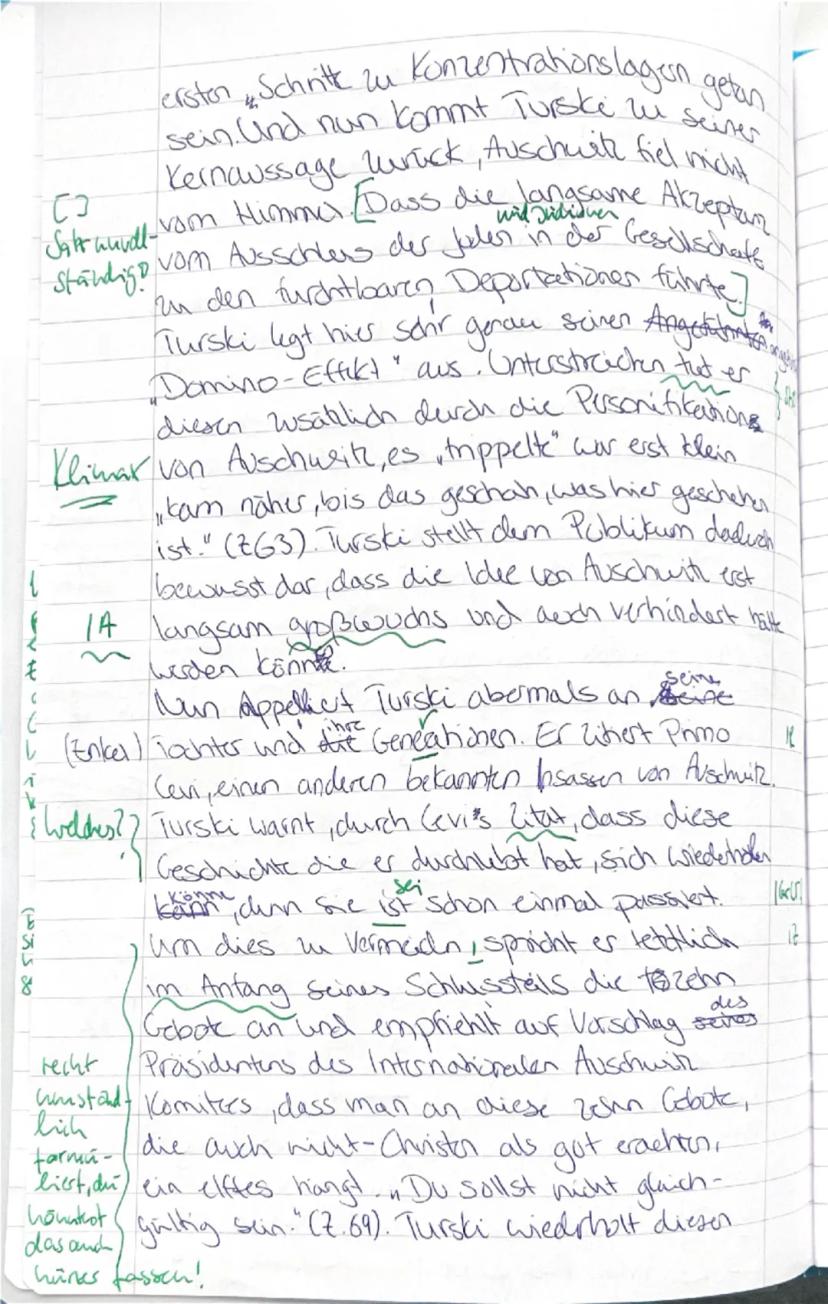 ersten „Schritt zu Konzentrationslagern getan
sein. Und nun kommt Turski zu seiner
Kernaussage zurück, Auschwitz fiel nicht
vom Himmel. [Dass die langsame Akzeptanz
[ ]
Satz unvoll-
ständig?
und Jüdinnen
vom Ausschluss der Juden in der Gesellschaft
zu den furchtbaren Deportationen führte.]
Turski legt hier sehr genau seinen
„Domino-Effekt" aus. Unterstreichen tut er
diesen zusätzlich durch die Personifikation
Klimax
von Auschwitz, es „trippelte" war erst klein
„kam näher, bis das geschah, was hier geschehen
ist." (Z 63). Turski stellt dem Publikum dadurch
bewusst dar, dass die Idee von Auschwitz erst
IA
langsam großwuchs und auch verhindert hätte
werden können.
Nun Appelliert Turski abermals an seine
(Enkel) Tochter und ihre Generationen. Er zitiert Primo
R
Levi, einen anderen bekannten Insassen von Auschwitz.
Welches?
Turski warnt, durch Levi's Zitat, dass diese
Geschichte die er durchlebt hat, sich wiederholen
könne
kann, denn sie ist schon einmal passiert.
sei
Um dies zu Vermeiden, spricht er letztlich
im Anfang seines Schlussteils die zehn
Gebote an und empfiehlt auf Vorschlag des
Präsidentens des Internationalen Auschwitz
Komitees, dass man an diese zehn Gebote,
die auch nicht-Christen als gut erachten,
ein elftes hängt. „Du sollst nicht gleich-
gültig sein." (Z.69). Turski wiederholt diesen
recht
umständ-
lich
formu-
liert, du
könntest
das auch
kürzer fassen!